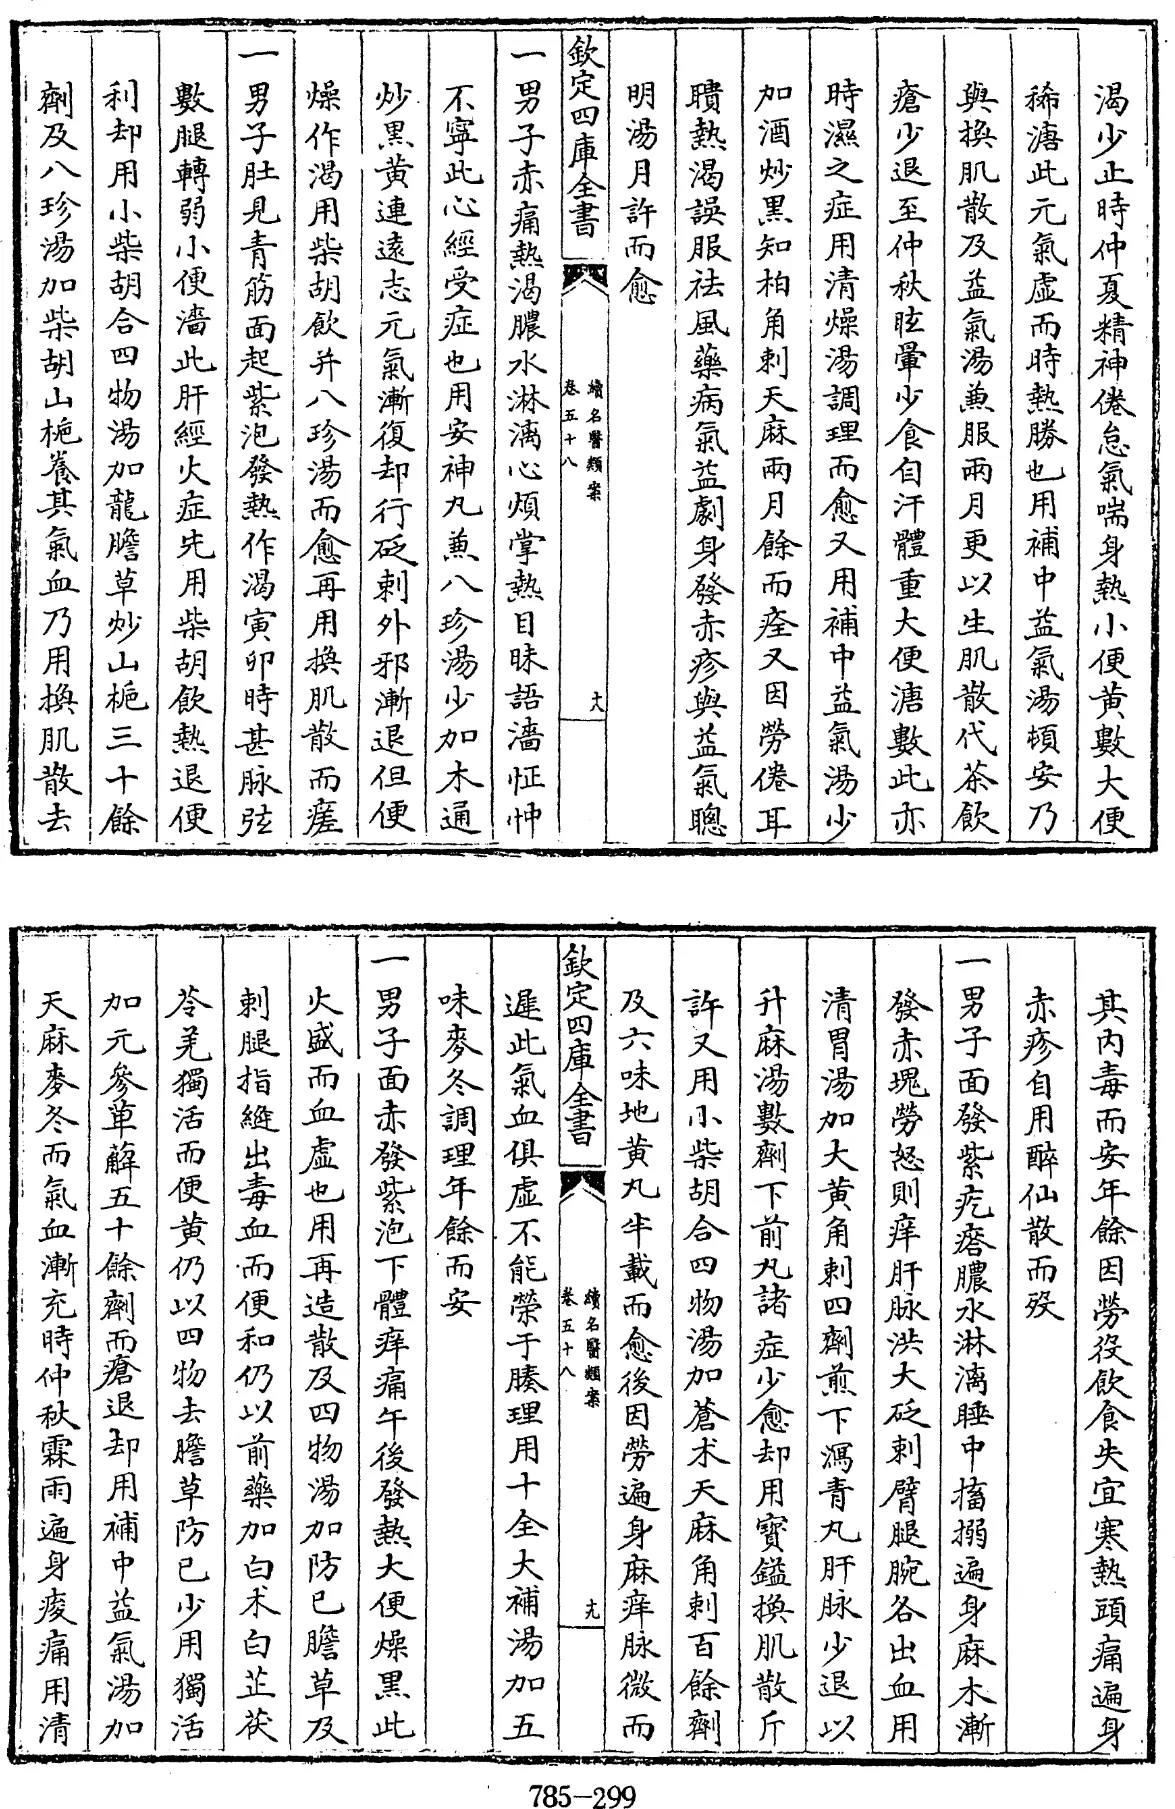 渴少止時仲夏精神倦怠氣喘身熱小便黄數大便
稀溏此元氣虛而時熱勝也用補中益氣湯頓安乃
與換肌散及益氣湯兼服兩月更以生肌散代茶飲
瘡少退至仲秋眩暈少食自汗體重大便溏數此亦
時濕之症用清燥湯調理而愈又用補中益氣湯少
加酒炒黑知柏角刺天麻兩月餘而痊又因勞倦耳
聵熱渴誤服祛風藥病氣益劇身發赤疹與益氣聰
明湯月許而愈
欽定四庫全書
續名醫類案
卷五十八
十八
一男子赤痛熱渴膿水淋漓心煩掌熱目昧語濇怔忡
不寧此心經受症也用安神丸兼八珍湯少加木通
炒黑黄連遠志元氣漸復却行砭刺外邪漸退但便
燥作渴用柴胡飲并八珍湯而愈再用換肌散而瘥
一男子肚見青筋面起紫泡發熱作渴寅卯時甚脉弦
數腿轉弱小便濇此肝經火症先用柴胡飲熱退便
利却用小柴胡合四物湯加龍膽草炒山梔三十餘
劑及八珍湯加柴胡山梔養其氣血乃用換肌散去
其内毒而安年餘因勞役飲食失宜寒熱頭痛遍身
赤疹自用醉仙散而歿
一男子面發紫疙瘩膿水淋漓睡中搐搦遍身麻木漸
發赤塊勞怒則痒肝脉洪大砭刺臂腿腕各出血用
清胃湯加大黄角刺四劑煎下瀉青丸肝脉少退以
升麻湯數劑下前丸諸症少愈却用寶鎰換肌散斤
許又用小柴胡合四物湯加蒼术天麻角刺百餘劑
及六味地黄丸半載而愈後因勞遍身麻痒脉微而
欽定四庫全書
續名醫類案
卷五十八
十九
遲此氣血俱虛不能榮于腠理用十全大補湯加五
味麥冬調理年餘而安
一男子面赤發紫泡下體痒痛午後發熱大便燥黑此
火盛而血虛也用再造散及四物湯加防已膽草及
刺腿指縫出毒血而便和仍以前藥加白术白芷茯
苓羌獨活而便黄仍以四物去膽草防已少用獨活
加元參萆薢五十餘劑而瘡退却用補中益氣湯加
天麻麥冬而氣血漸充時仲秋霖雨遍身痠痛用清
785-299